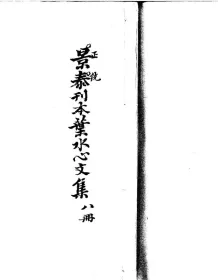 正統
景泰刊本葉水心文集 八冊